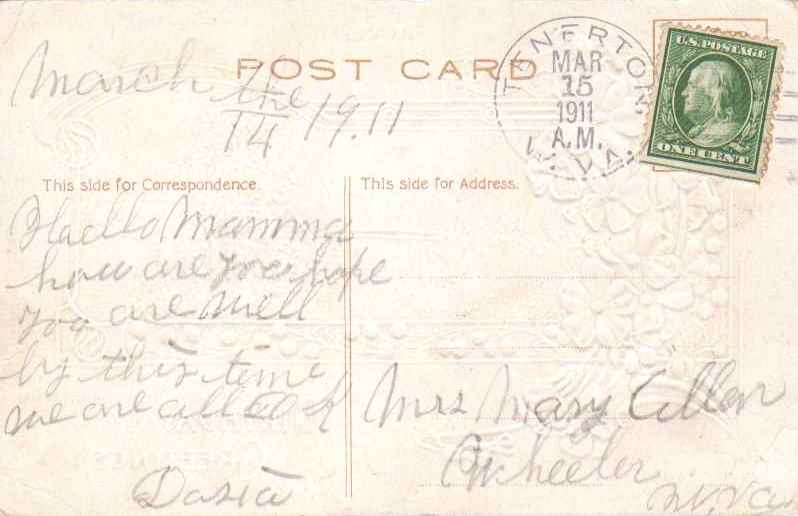 POST CARD
March the
14 19.11
TENERTON
MAR
15
1911
A.M.
W. VA.
U.S. POSTAGE
ONE CENT
This side for Correspondence.
This side for Address.
Haello Mamma
how are you hope
you are well
by this time
we are all O K
Dasia
Mrs Mary Cellar
Wheeler
W.Va